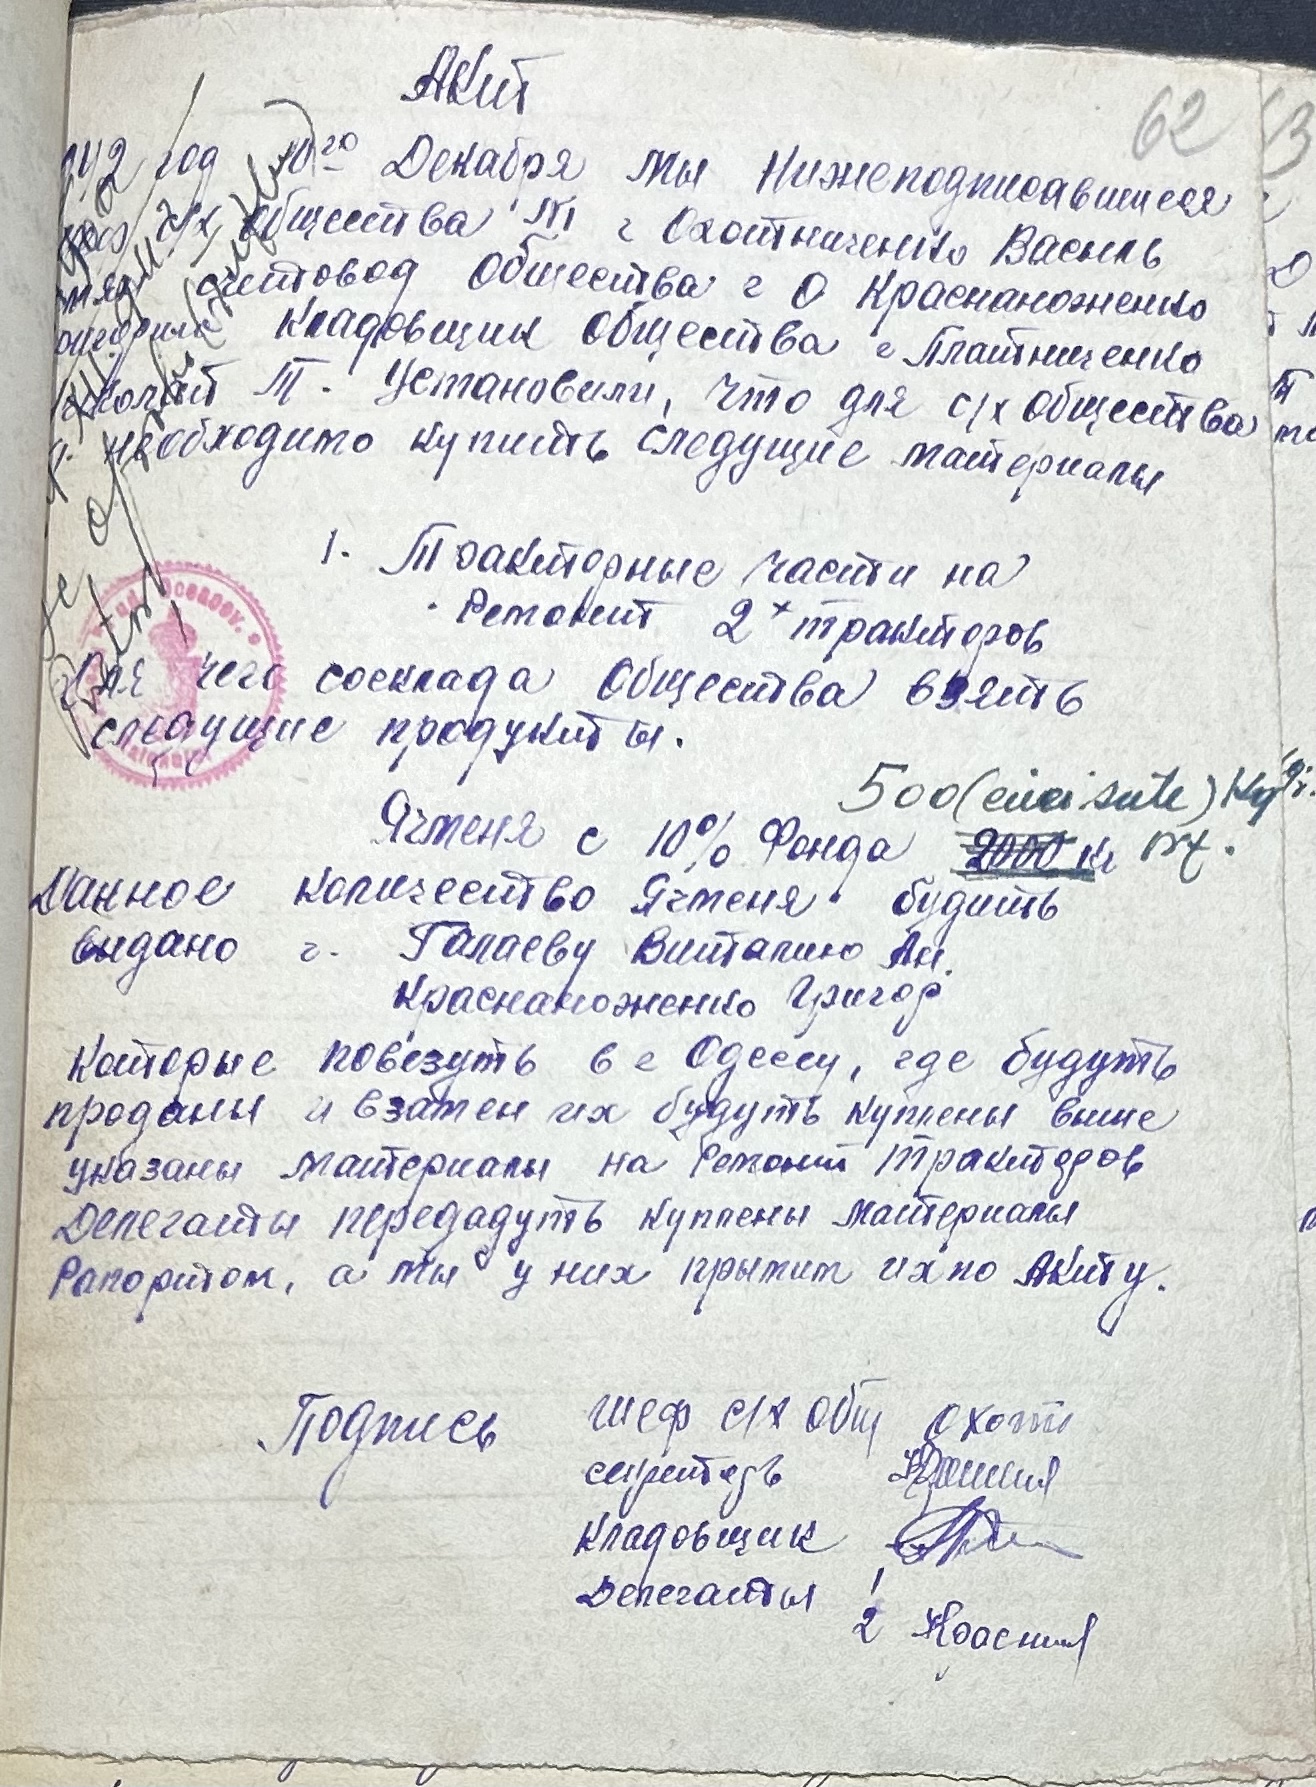 Акт
62
1942 год 10го Декабря мы Нижеподписавшиеся
с/х общества г Охотниченко Василь
счетовод Общества г О Краснаноженко
Кладовщик Общества г Плантниченко
Т. Установили, что для с/х общества
необходимо купить следущие материалы
1. Тракторные части на
Ремонт 2х тракторов
Для чего сосклада Общества взять
следущие продукты.
500 (cinci sute) Kgr.
Ячменя с 10% Фонда 2000 кг
Данное количество Ячменя будить
выдано г. Галаеву Виталию Ан.
Краснаноженко Григор
Которые повезуть в г Одессу, где будуть
проданы и взамен их будуть куплены выше
указаны материалы на Ремонт Тракторов
Делеганты передадуть куплены материалы
Рапортом, а мы у них прымим их по Акту.
Подпись Шеф с/х общ Охотн
Кладовщик
Делеганты 1
2 Красная